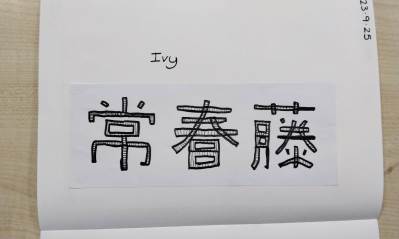 23.9.25
Ivy
常春藤